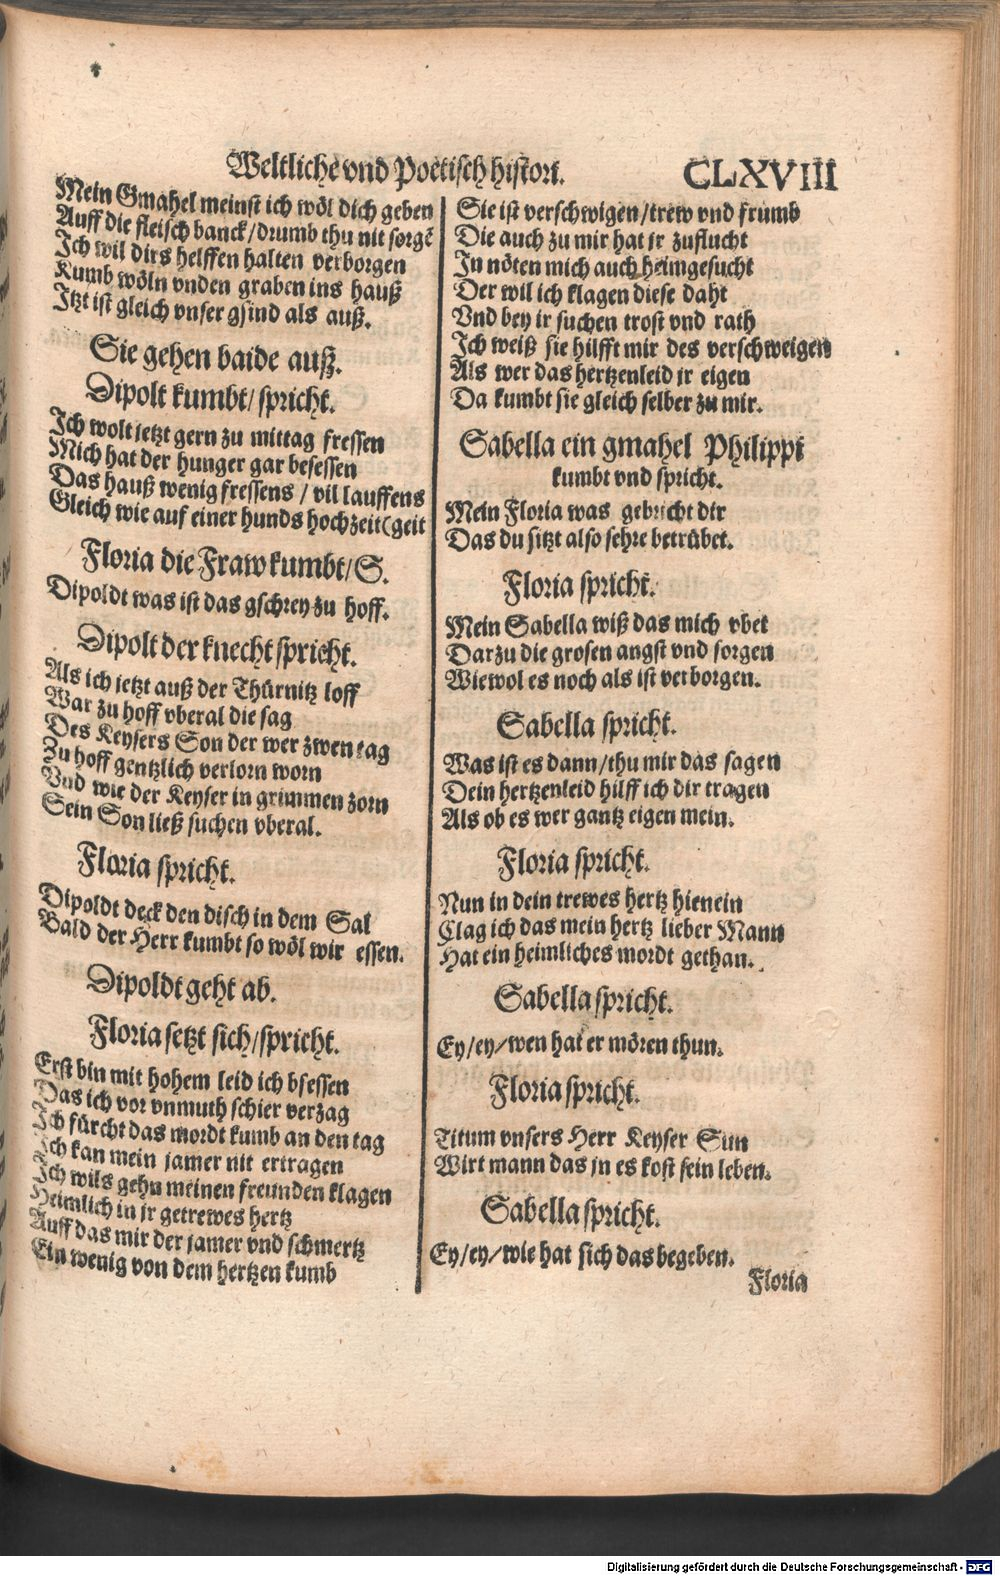 Weltliche vnd Poetisch histori.
CLXVIII
Mein Gmahel meinst ich wöl dich geben
Auff die fleisch banck/drumb thu nit sorgē
Ich wil dirs helffen halten verborgen
Kumb wöln vnden graben ins hauß
Itzt ist gleich vnser gsind als auß.
Sie gehen baide auß.
Dipolt kumbt/spricht.
Ich wolt jetzt gern zu mittag fressen
Mich hat der hunger gar besessen
Das hauß wenig fressens / vil lauffens
Gleich wie auf einer hunds hochzeit(geit
Floria die Fraw kumbt/S.
Dipoldt was ist das gschrey zu hoff.
Dipolt der knecht spricht.
Als ich jetzt auß der Thürnitz loff
War zu hoff vberal die sag
Des Keysers Son der wer zwen tag
Zu hoff gentzlich verlorn worn
Vnd wie der Keyser in grimmen zorn
Sein Son ließ suchen vberal.
Floria spricht.
Dipoldt deck den disch in dem Sal
Bald der Herr kumbt so wöl wir essen.
Dipoldt geht ab.
Floria setzt sich/spricht.
Erst bin mit hohem leid ich bsessen
Das ich vor vnmuth schier verzag
Ich fürcht das mordt kumb an den tag
Ich kan mein jamer nit ertragen
Ich wils gehn meinen freunden klagen
Heimlich in jr getrewes hertz
Auff das mir der jamer vnd schmertz
Ein wenig von dem hertzen kumb
Sie ist verschwigen/trew vnd frumb
Die auch zu mir hat jr zuflucht
In nöten mich auch heimgesucht
Der wil ich klagen diese daht
Vnd bey ir suchen trost vnd rath
Ich weiß sie hilfft mir des verschweigen
Als wer das hertzenleid jr eigen
Da kumbt sie gleich selber zu mir.
Sabella ein gmahel Philippi
kumbt vnd spricht.
Mein Floria was gebricht dir
Das du sitzt also sehre betrübet.
Floria spricht.
Mein Sabella wiß das mich vbet
Darzu die grosen angst vnd sorgen
Wiewol es noch als ist verborgen.
Sabella spricht.
Was ist es dann/thu mir das sagen
Dein hertzenleid hilff ich dir tragen
Als ob es wer gantz eigen mein.
Floria spricht.
Nun in dein trewes hertz hienein
Clag ich das mein hertz lieber Mann
Hat ein heimliches mordt gethan.
Sabella spricht.
Ey/ey/wen hat er mören thun.
Floria spricht.
Titum vnsers Herr Keyser Sun
Wirt mann das jn es kost sein leben.
Sabella spricht.
Ey/ey/wie hat sich das begeben.
Floria
Digitalisierung gefördert durch die Deutsche Forschungsgemeinschaft - DFG